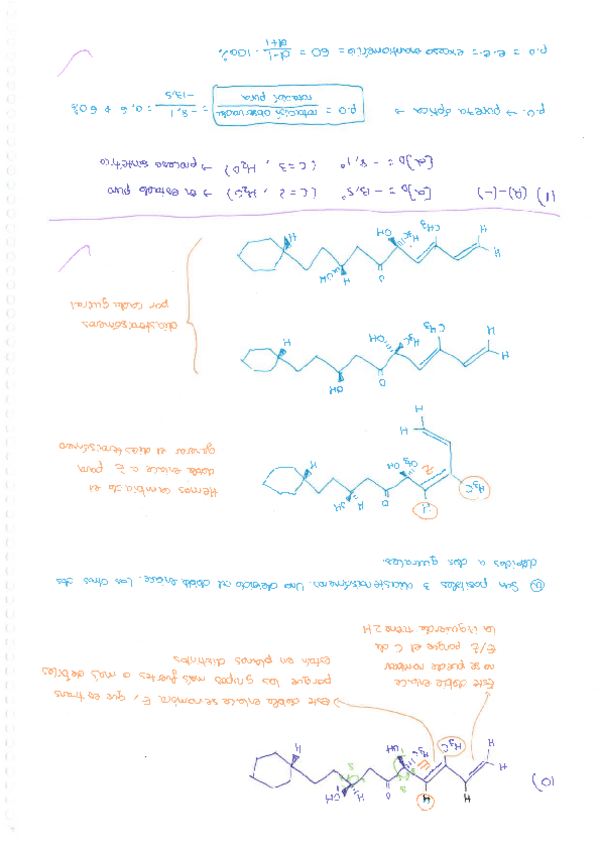 10)
H
H
H
H
H₃C
H₃C
OH
O
H
OH
H
S
S
E
Este doble enlace
no se puede nombrar
E/Z porque el C de
la izquierda tiene 2H
este doble enlace se nombra E, que es trans
porque los grupos más fuertes a más débiles
están en planos distintos
a) Son posibles 3 diastereoisómeros. Uno debido al doble enlace. Los otros dos
debidos a dos quirales.
H₃C
H
Z
CH₃
OH
O
H
OH
H
H
H
Hemos cambiado el
doble enlace a Z para
generar el diastereoisómero
H
H
CH₃
H₃C
OH
O
OH
H
H
H
CH₃
H₃C
OH
O
H
OH
H
diastereoisómeros
por cada quiral
11) (R)-(-)
[α]D = -13,5° (c=2, H₂O) → en estado puro
[α]D = -8,1° (c=3, H₂O) → proceso sintético
p.o. → pureza óptica → p.o = rotación observada / rotación pura = -8,1 / -13,5 = 0,6 → 60%
p.o = e.e. = exceso enantiomérico = 60 = d-l / d+l · 100%